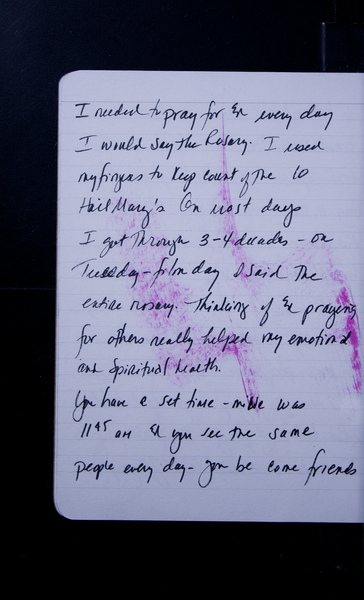 I needed to pray for & every day
I would say the Rosary. I used
my fingers to keep count of the 10
Hail Mary's On most days
I got through 3-4 decades - on
Tuesday - film day I said the
entire rosary. Thinking of & praying
for others really helped my emotional
and Spiritual health.
You have a set time - mine was
11 45 am & you see the same
people every day - you be come friends